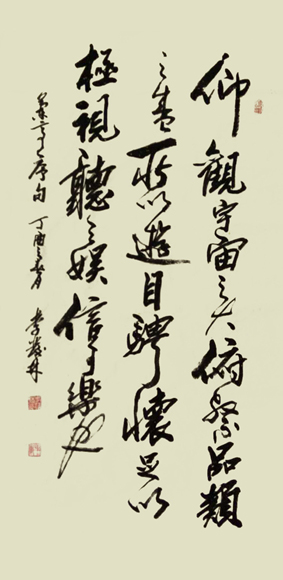 仰觀宇宙之大俯察品類
之盛所以遊目騁懷足以
極視聽之娛信可樂也
蘭亭序句 丁酉之春月 李林